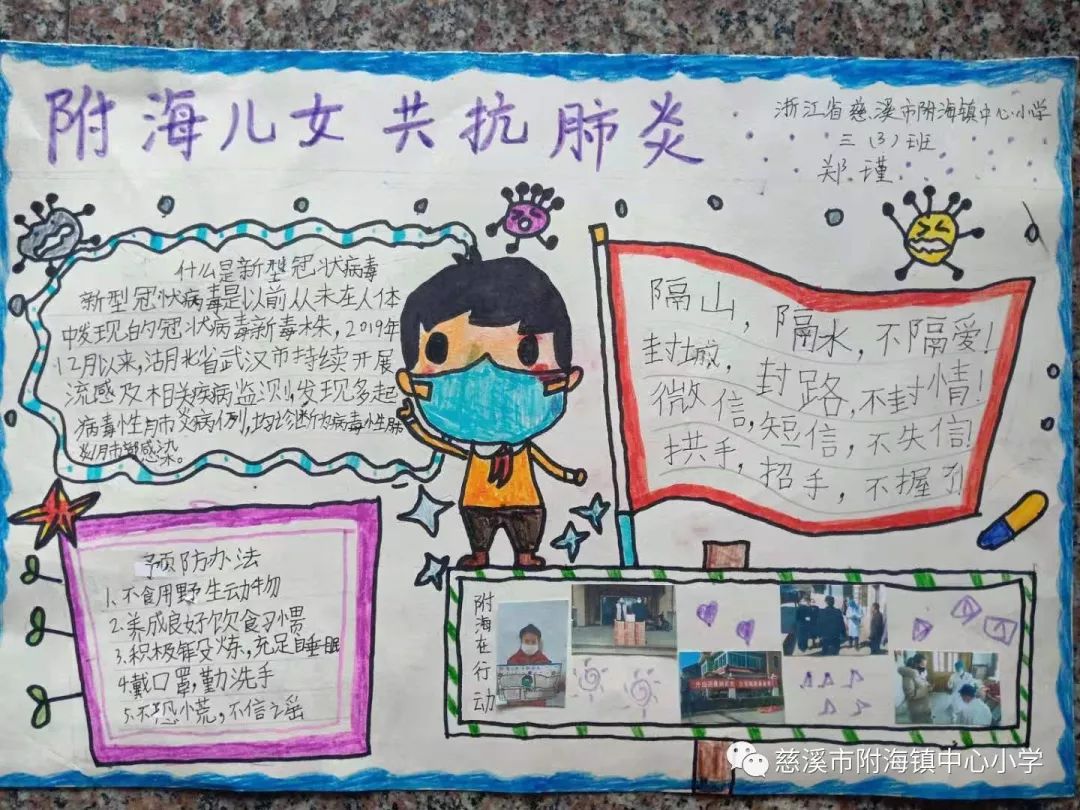 附海儿女共抗肺炎
浙江省慈溪市附海镇中心小学
三(3)班
郑瑾
什么是新型冠状病毒
新型冠状病毒是以前从未在人体
中发现的冠状病毒新毒株，2019年
12月以来，湖北省武汉市持续开展
流感及相关疾病监测，发现多起
病毒性肺炎病例，均诊断为病毒性肺
炎/肺部感染。
隔山，隔水，不隔爱！
封城，封路，不封情！
微信，短信，不失信！
拱手，招手，不握手！
预防办法
1、不食用野生动物
2.养成良好饮食习惯
3.积极锻炼，充足自睡眠
4.戴口罩，勤洗手
5.不恐小荒，不信谣
附海在行动
慈溪市附海镇中心小学